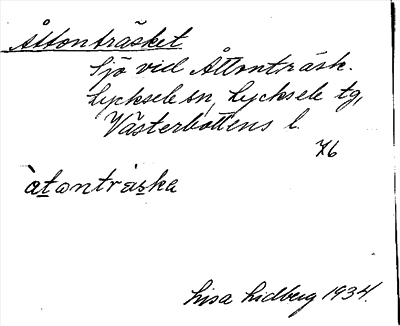 Åttonträsket
Sjö vid Åttonträsk.
Lycksele sn, Lycksele tg,
Västerbottens l.
76
àt̲onträs̲ka
Lisa Lidberg 1934.